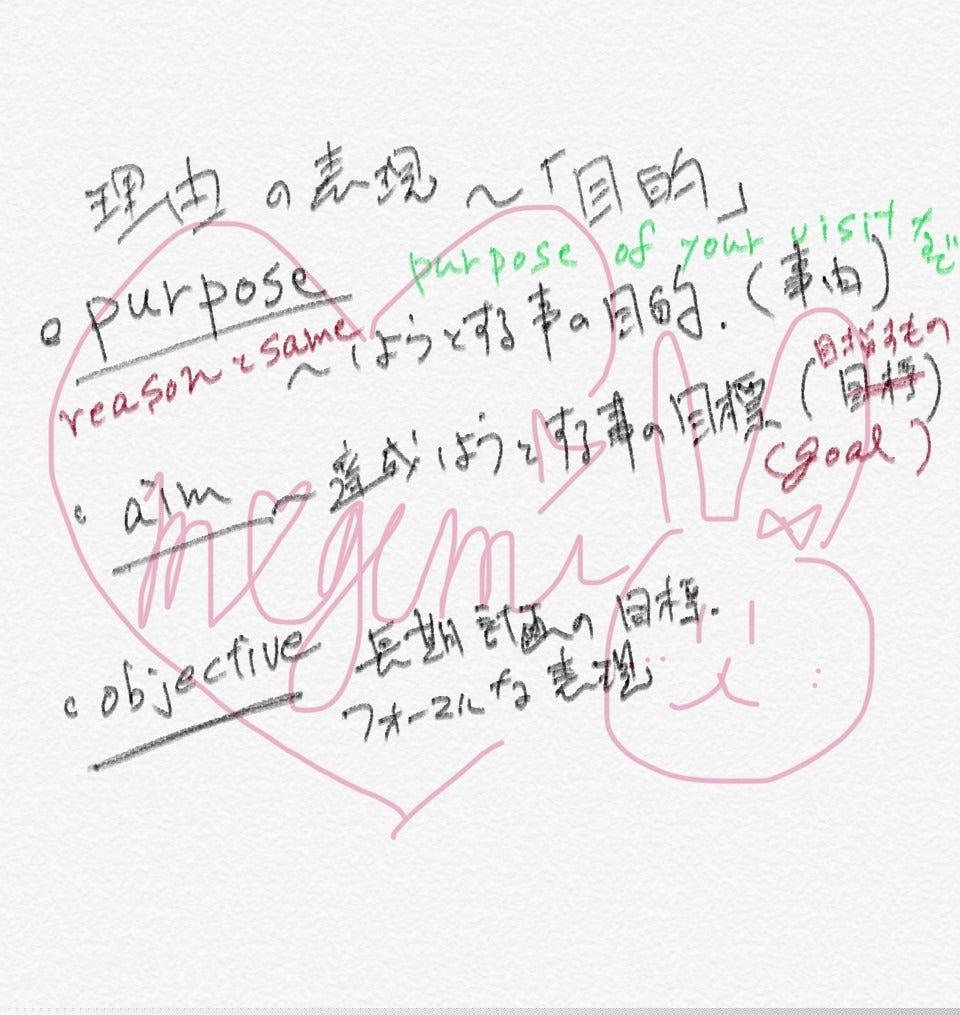 理由の表現〜「目的」
purpose of your visit など
purpose
〜しようとする事の目的.(事由)
reasonとsame
目ざすもの
aim 〜達成しようとする事の目標(目標)
(goal)
megumi
objective 長期計画の目標.
フォーマルな表現